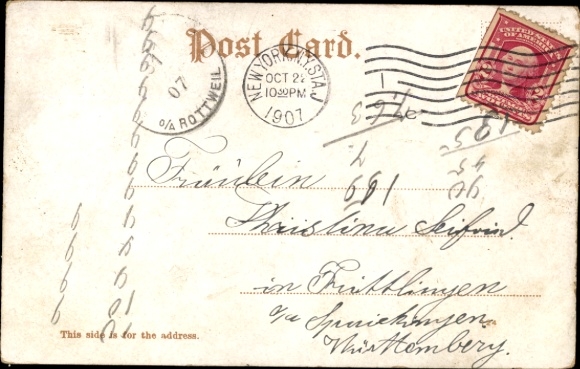 Post Card.
NEW YORK, N.Y. STA. J
OCT 22
10 30 PM
1907
UNITED STATES
OF AMERICA
07
o/A ROTTWEIL
Fräulein
Christina Seifried.
in Frittlingen
o/a Spaichingen
Württemberg.
This side is for the address.